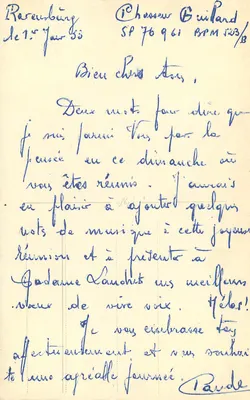 Ravensburg Chasseur Guillard
le 1er Juin 53 SP 76 961 BPM 523/B
Bien chers Ams,
Deux mots pour dire que
je suis parmi Vous par la
pensée en ce dimanche où
vous êtes réunis. J'aurais
eu plaisir à ajouter quelques
nots de musique à cette joyeuse
réunion et à présenter à
Madame mes meilleurs
vœux de vive voix. Hélas!
Je vous embrasse tous
affectueusement et vous souhai
te une agréable journée.
Claude